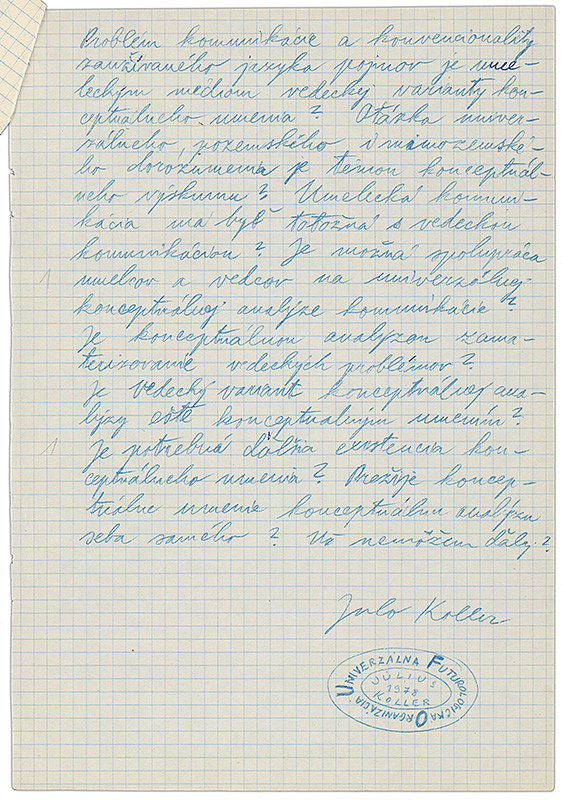 Problém komunikácie a konvencionality
zaužívaného jazyka pojmov je ume-
leckým médiom vedeckej varianty kon-
ceptuálneho umenia? Otázka univer-
zálneho, pozemského i mimozemské-
ho dorozumenia je témou konceptuál-
neho výskumu? Umelecká komuni-
kácia má byť totožná s vedeckou
komunikáciou? Je možná spolupráca
umelcov a vedcov na univerzálnej
konceptuálnej analýze komunikácie?
Je konceptuálnou analýzou
vedeckých problémov?
Je vedecký variant konceptuálnej ana-
lýzy ešte konceptuálnym umením?
Je potrebná ďalšia existencia kon-
ceptuálneho umenia? Prežije koncep-
tuálne umenie konceptuálnu analýzu
seba samého? Už nemôžem ďalej?
Julo Koller
UNIVERZÁLNA FUTUROLOGICKÁ ORGANIZÁCIA
JÚLIUS
1978
KOLLER